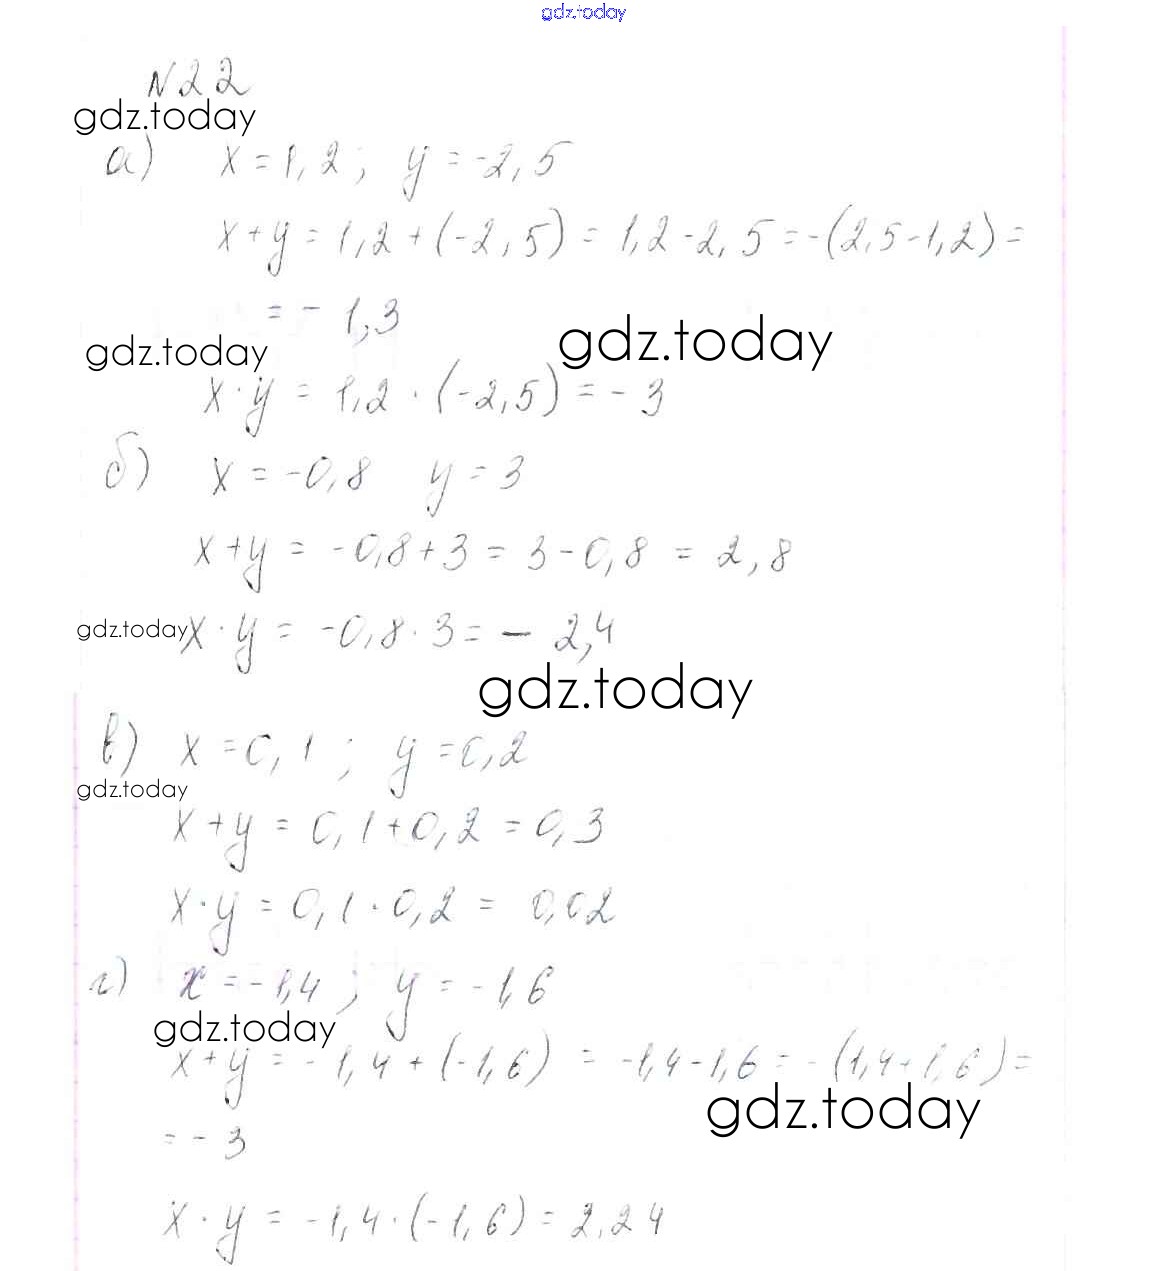 gdz.today
N22
gdz.today
а) x = 1,2 ; y = -2,5
x + y = 1,2 + (-2,5) = 1,2 - 2,5 = -(2,5-1,2) =
= - 1,3
gdz.today
gdz.today
x · y = 1,2 · (-2,5) = - 3
б) x = -0,8 y = 3
x + y = -0,8 + 3 = 3 - 0,8 = 2,8
gdz.today
x · y = -0,8 · 3 = - 2,4
gdz.today
в) x = 0,1 ; y = 0,2
gdz.today
x + y = 0,1 + 0,2 = 0,3
x · y = 0,1 · 0,2 = 0,02
г) x = -1,4 ; y = -1,6
gdz.today
x + y = -1,4 + (-1,6) = -1,4 - 1,6 = -(1,4+1,6) =
gdz.today
= - 3
x · y = -1,4 · (-1,6) = 2,24